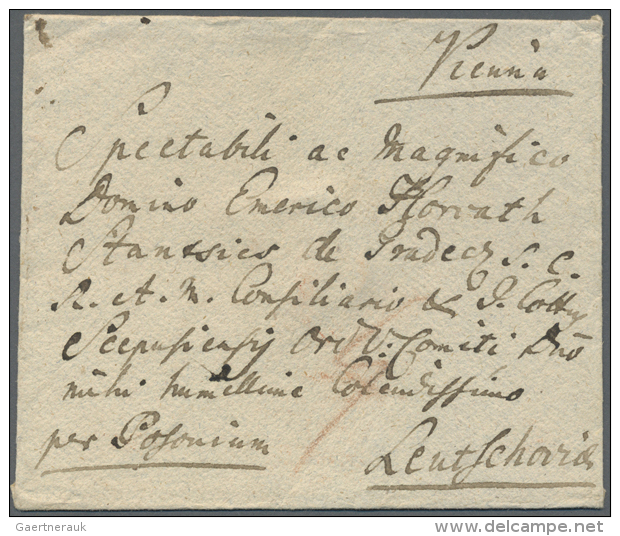 Vienna
Spectabili ac Magnifico
Domino Emerico Horvath
Stanssics de Gradecz S. C.
R. et A. M. Consiliario & I. Cottus
Scepusiensis Ord. V. Comiti Dno
mihi humillime Colendissimo
per Posonium
Leutschoviae
Gaertnerauk
delcampe.net